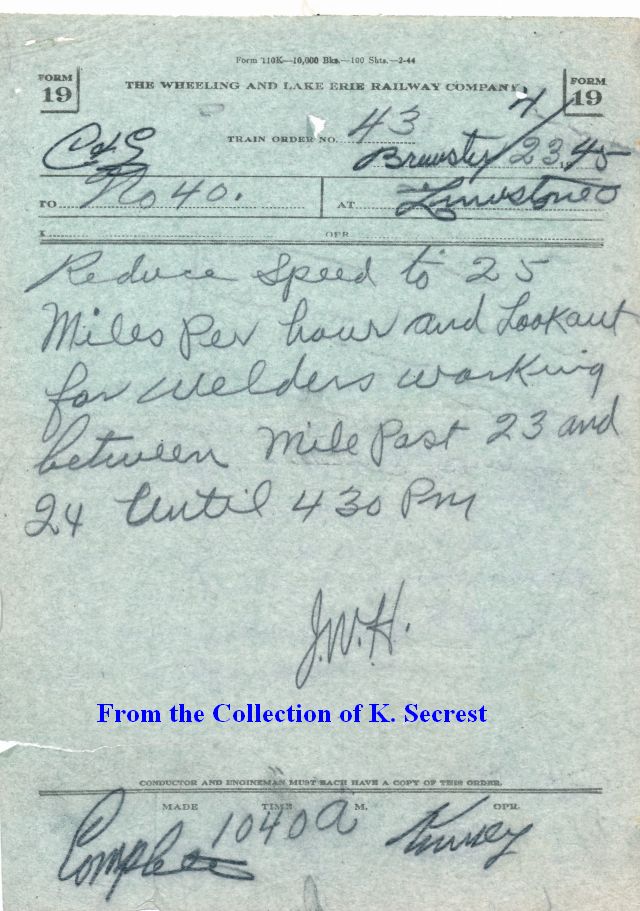 Form 110K—10,000 Bks.—100 Shts.—2-44
FORM 19
THE WHEELING AND LAKE ERIE RAILWAY COMPANY
FORM 19
TRAIN ORDER NO. 43
C&E
Brewster 4/23 1945
TO No 40. AT Limestone
X OPR.
Reduce Speed to 25
Miles Per hour and Lookout
for welders working
between Mile Post 23 and
24 Until 430 Pm
J.W.H.
From the Collection of K. Secrest
CONDUCTOR AND ENGINEMAN MUST EACH HAVE A COPY OF THIS ORDER.
MADE TIME M. OPR.
Complete 1040 a